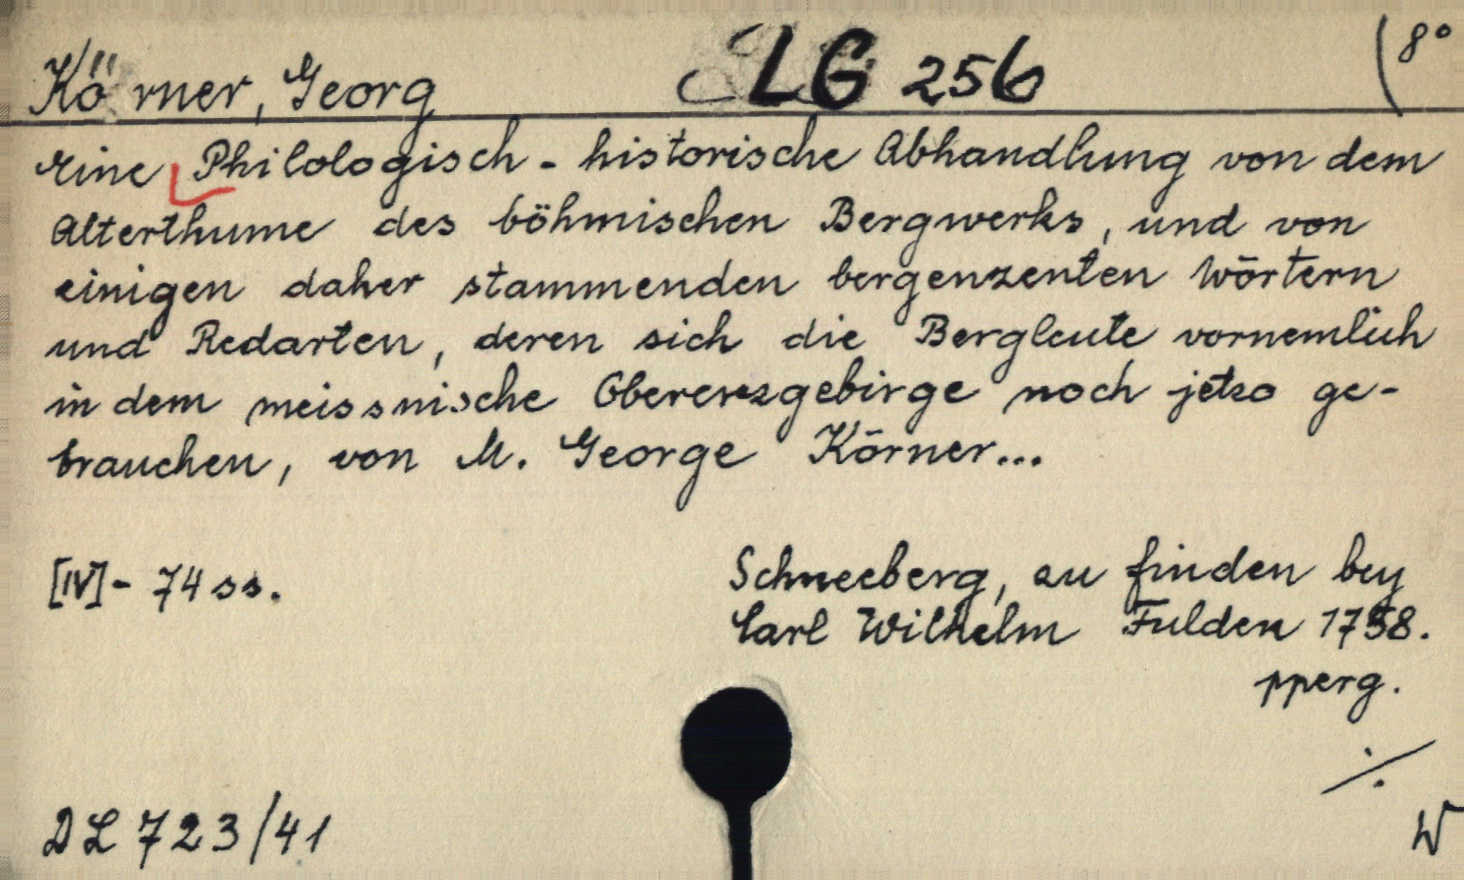 Körner, Georg LG 256 (8°
Eine Philologisch-historische Abhandlung von dem
Alterthume des böhmischen Bergwerks, und von
einigen daher stammenden bergenzenten Wörtern
und Redarten, deren sich die Bergleute vornemlich
in dem meissnische Obererzgebirge noch jetzo ge-
brauchen, von M. George Körner...
[IV]- 74 ss.
Schneeberg, zu finden bey
Carl Wilhelm Fulden 1758.
pperg.
./.
DL 723/41
W